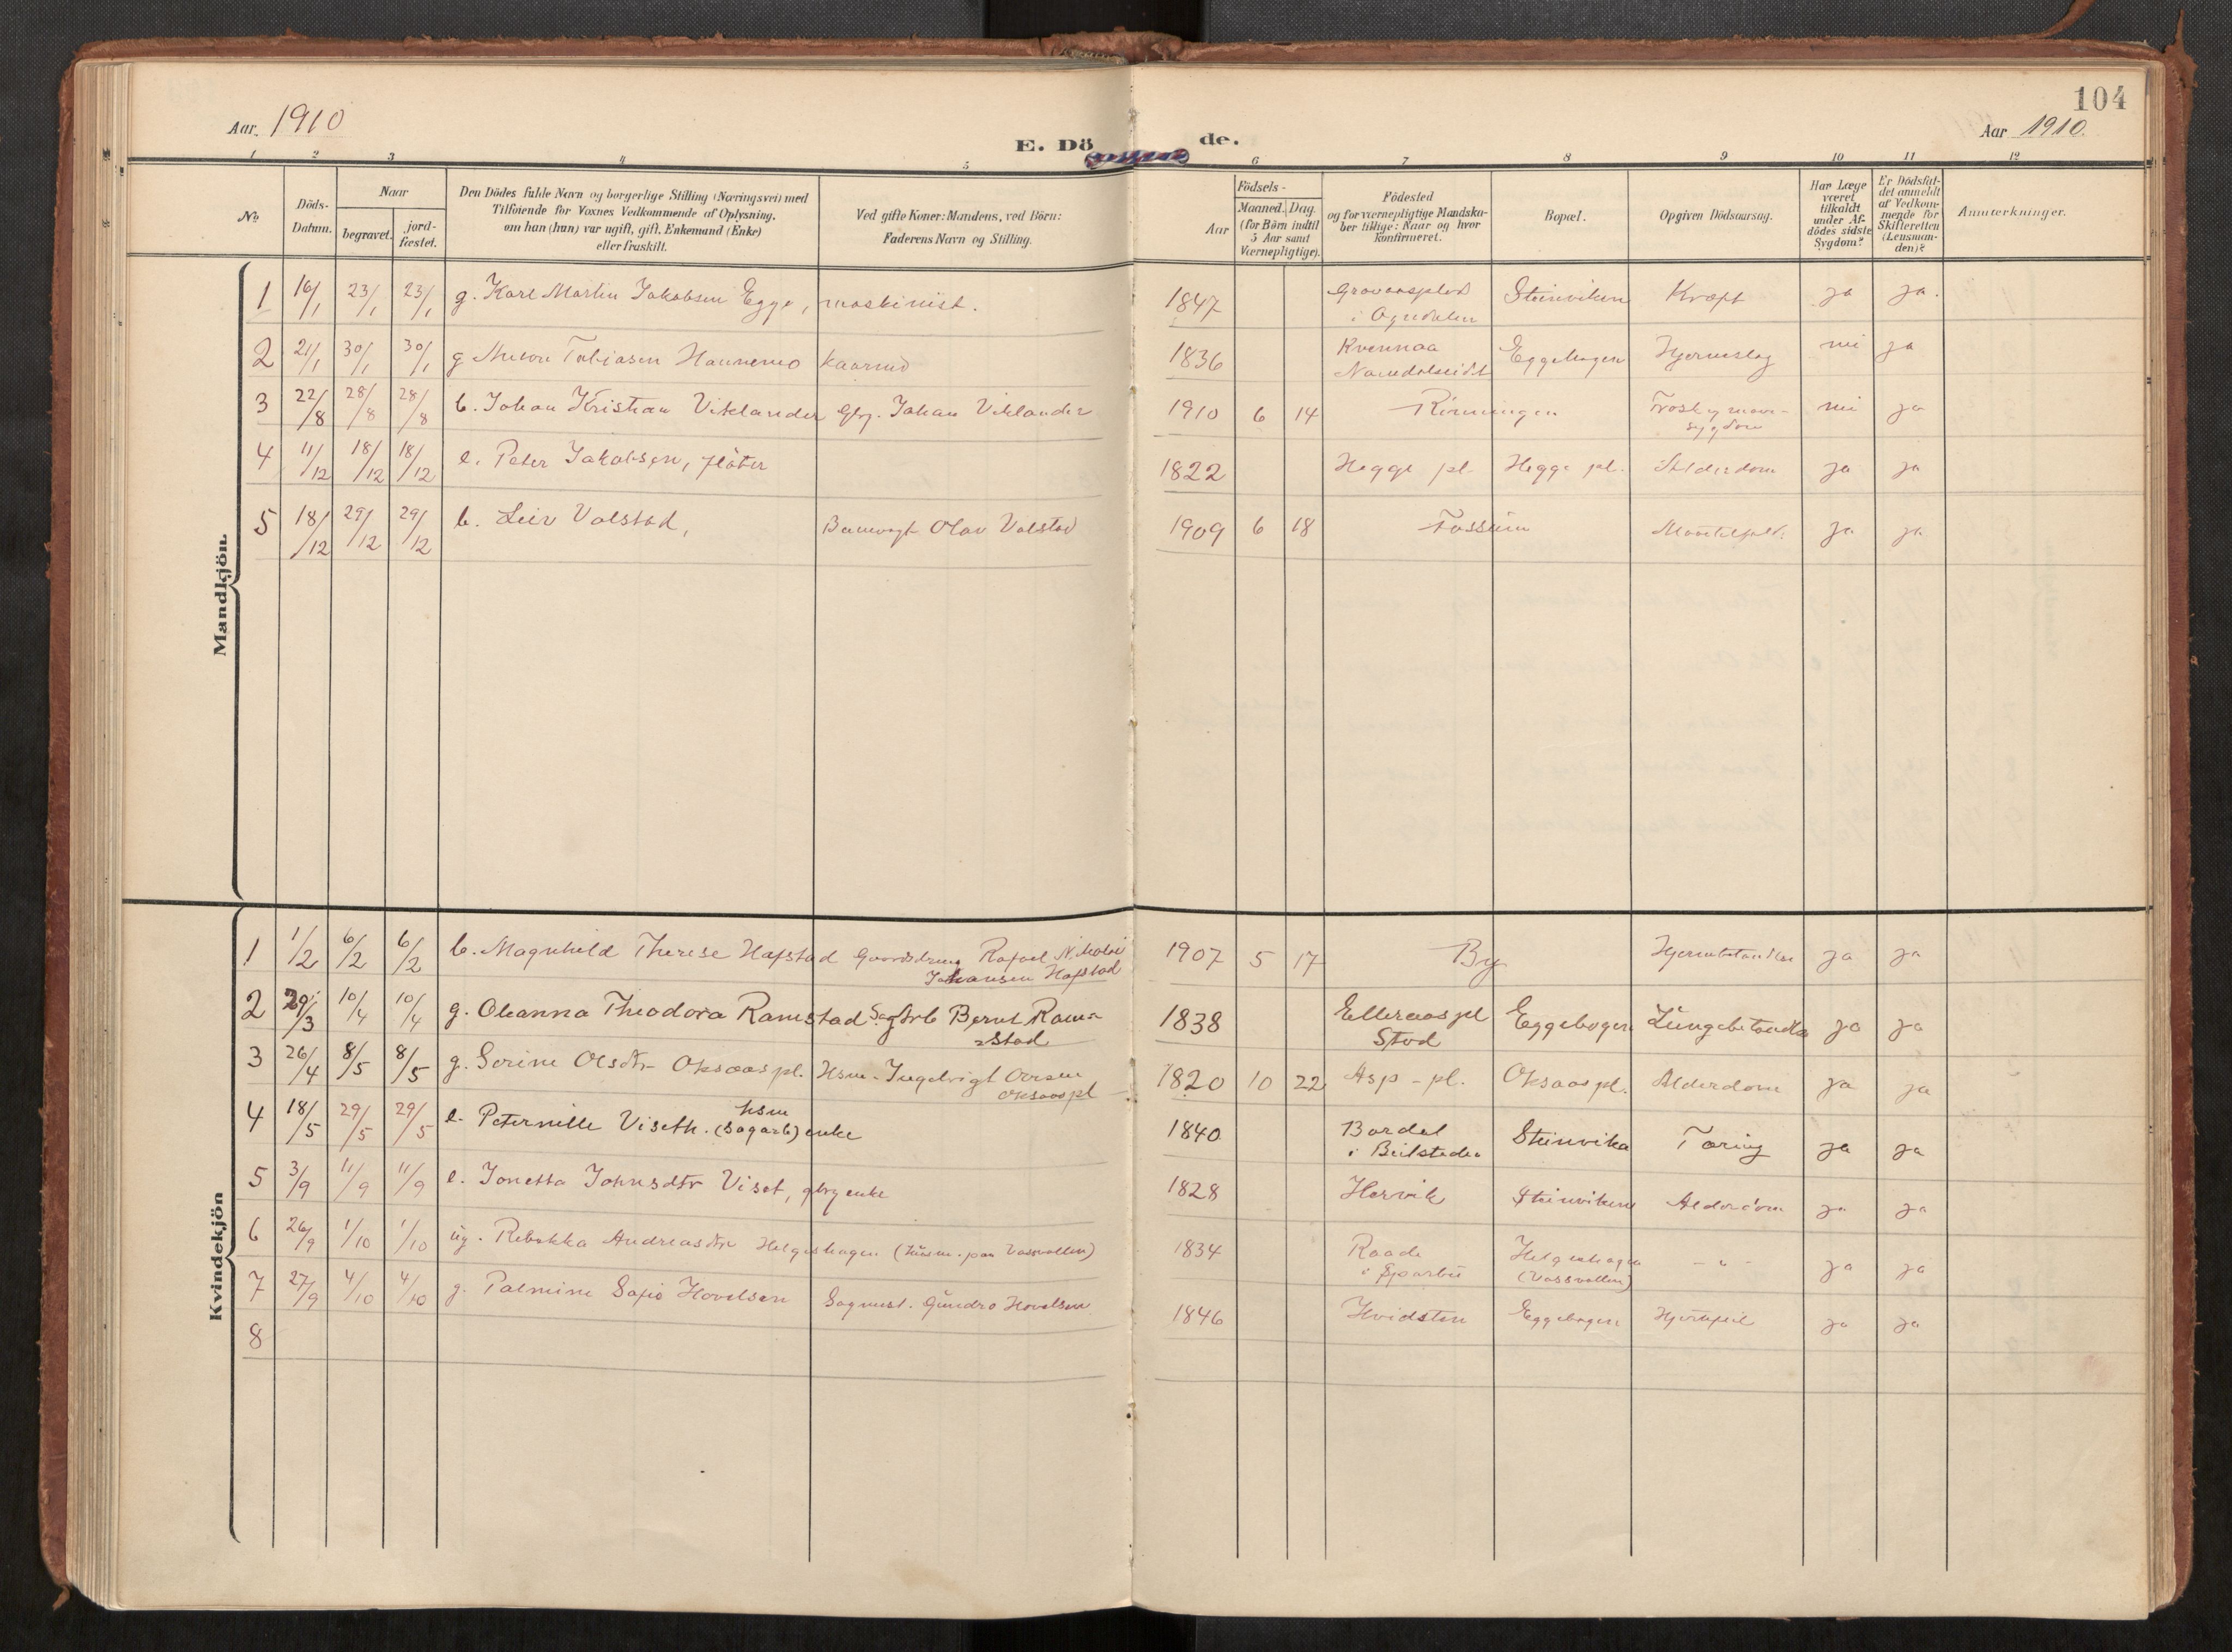 104
Aar. 1910
E. Dö de.
Aar 1910.
1 2 3 4 5 6 7 8 9 10 11 12
No
Döds-
Datum.
Naar
begravet.
jord-
fæstet.
Den Dödes fulde Navn og borgerlige Stilling (Næringsvei) med
Tilföiende for Voxnes Vedkommende af Oplysning,
om han (hun) var ugift, gift, Enkemand (Enke)
eller fraskilt.
Ved gifte Koner: Mandens, ved Börn:
Faderens Navn og Stilling.
Födsels-
Aar
Maaned. Dag.
(for Börn indtil
5 Aar samt
Værnepligtige).
Födested
og for værnepligtige Mandska-
ber tillige: Naar og hvor
konfirmeret.
Bopæl.
Opgiven Dödsaarsag.
Har Læge
været
tilkaldt
under Af-
dödes sidste
Sygdom?
Er Dödsfal-
det anmeldt
af Vedkom-
mende for
Skifteretten
(Lensman-
den)?
Anmærkninger.
Mandkjön.
1 16/1 23/1 23/1 g. Karl Martin Jakobsen Egge, maskinist. 1847 i Ogndalen Steinviken Kræft ja ja.
2 21/1 30/1 30/1 g Anton Tobiasen Hannemo kaarmd 1836 Kvennaa
Namdalseidet Eggebogen Hjerneslag nei ja
3 22/8 28/8 28/8 b. Johan Kristian Viklander Gbr. Johan Viklander 1910 6 14 Rönningen sygdom nei ja
4 11/12 18/12 18/12 e. Peter Jakobsen, fløter 1822 Hegge pl. Hegge pl. Alderdom ja ja
5 18/12 29/12 29/12 b. Leiv Valstad, Banevogt Olav Valstad 1909 6 18 Fossum ja ja
Kvindekjön
1 1/2 6/2 6/2 b. Magnhild Therese Hafstad Gaardsdreng Rafael Nikolai
Johansen Hafstad 1907 5 17 By ja ja
2 29/3 10/4 10/4 g. Oleanna Theodora Ramstad Sagarb Bernt Ram-
stad 1838 Elleraas pl
Stod Eggebogen Lungebetændelse ja ja
3 26/4 8/5 8/5 g. Serine Olsdtr Oksaas pl. Hsm. Ingebrigt
Oksaas pl 1820 10 22 Asp-pl. Oksaas pl. Alderdom ja ja
4 18/5 29/5 29/5 e. Peternille Viseth. hsm (Sagarb) enke 1840 Bardal
i Beitstaden Steinvika Tæring ja ja
5 3/9 11/9 11/9 e. Jonetta Johnsdtr Viset, gbrenke 1828 Hervik Steinviken Alderdom ja ja
6 26/9 1/10 1/10 ug. Rebekka Andreasdtr Helgeshagen (husm. paa Vassvollen) 1834 Raade
i Sparbu Helgeshagen
(Vassvollen) - " - ja ja
7 27/9 4/10 4/10 g. Palmine Sofie Hovelsen Sagmest. Gundro Hovelsen 1846 Hvidsten Eggebogen Hjertefeil ja ja
8